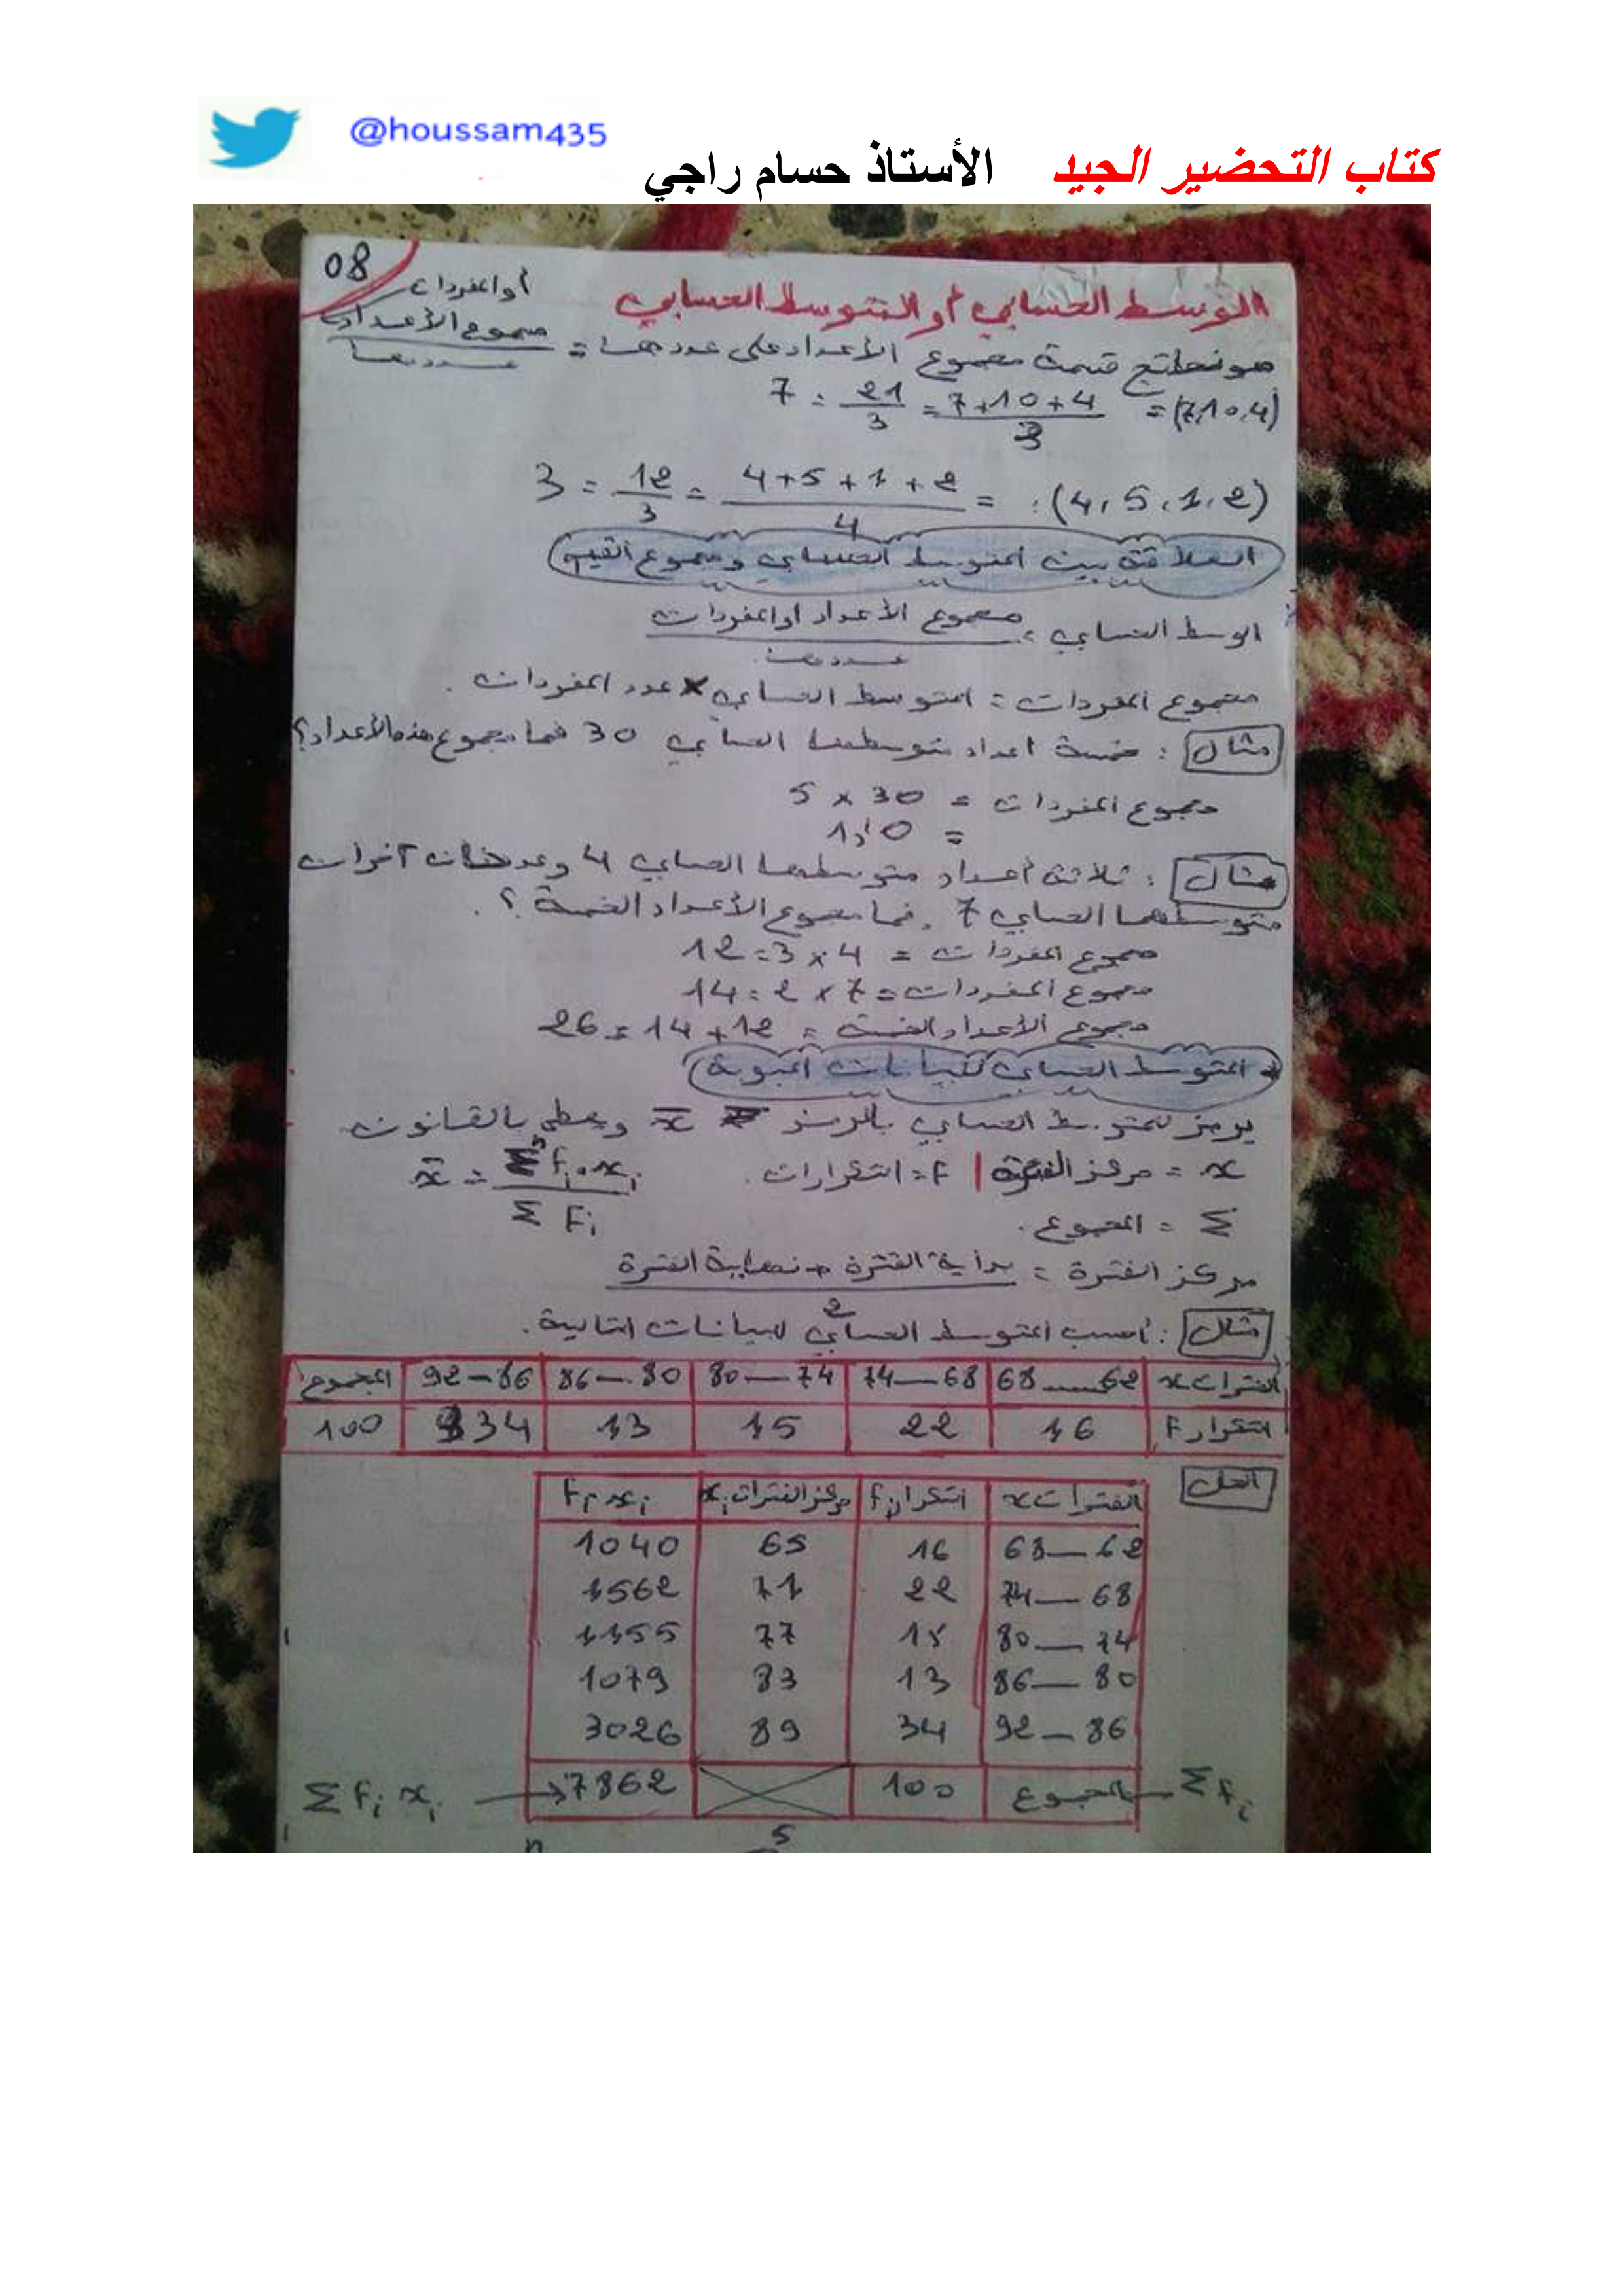 @houssam435
كتاب التحضير الجيد الأستاذ حسام راجي
08
الوسط الحسابي أو المتوسط الحسابي
أو المفردات
هو نتائج قسمة مجموع الأعداد على عددها = مجموع الأعداد / عددها
(7,10,4) = 7+10+4 / 3 = 21 / 3 = 7
(4, 5, 1, 2) : = 4+5+1+2 / 4 = 12 / 3 = 3
العلاقة بين المتوسط الحسابي ومجموع القيم
الوسط الحسابي = مجموع الأعداد أو المفردات / عددها
مجموع المفردات = المتوسط الحسابي × عدد المفردات .
مثال : خمسة أعداد متوسطها الحسابي 30 فما مجموع هذه الأعداد؟
مجموع المفردات = 30 × 5
=
مثال : ثلاثة أعداد متوسطها الحسابي 4 وعددان آخران
متوسطهما الحسابي 7 . فما مجموع الأعداد الخمسة ؟ .
مجموع المفردات = 4 × 3 = 12
مجموع المفردات = 7 × 2 = 14
مجموع الأعداد الخمسة = 12 + 14 = 26
المتوسط الحسابي للبيانات المبوبة
يرمز للمتوسط الحسابي بالرمز x̄ ويعطى بالقانون
x = مركز الفترة | F = التكرارات . x̄ = Σ Fi . xi / Σ Fi
Σ = المجموع .
مركز الفترة = بداية الفترة + نهاية الفترة / 2
مثال : أحسب المتوسط الحسابي للبيانات التالية .
الفترات x 62—68 68—74 74—80 80—86 86—92 المجموع
التكرار F 16 22 15 13 34 100
الحل
الفترات x التكرار fi مركز الفترات xi Fi xi
62—68 16 65 1040
68—74 22 71 1562
74—80 15 77 1155
80—86 13 83 1079
86—92 34 89 3026
Σ fi المجموع 100 7862 Σ fi xi
n 5